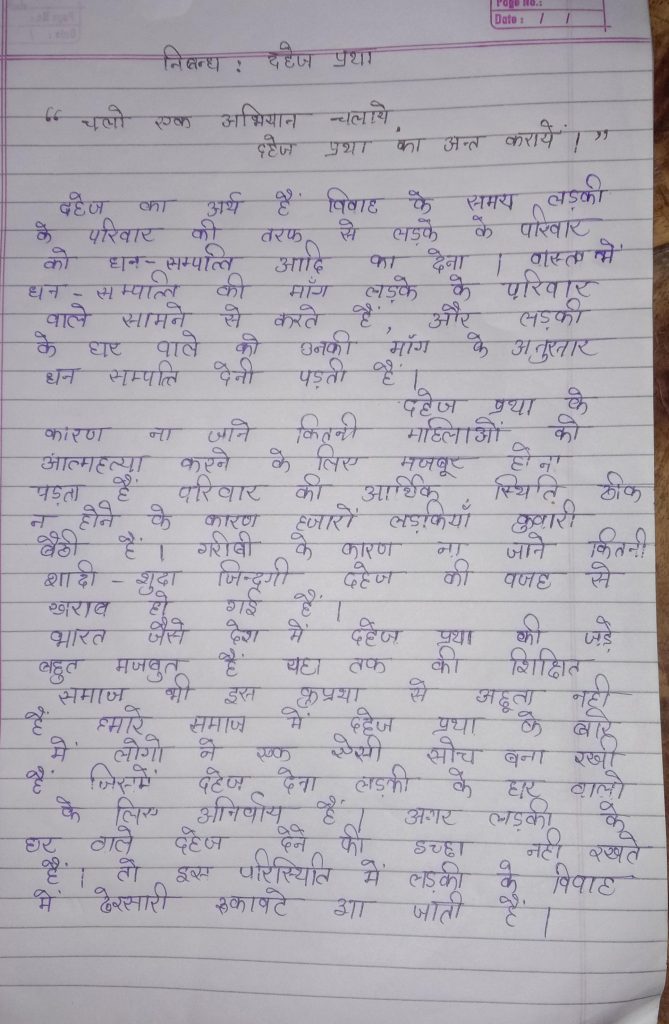 Page No.:
Date: / /
निबन्ध : दहेज प्रथा
“ चलो एक अभियान चलाये,
दहेज प्रथा का अन्त करायें । ”
दहेज का अर्थ हैं विवाह के समय लड़की
के परिवार की तरफ से लड़के के परिवार
को धन-सम्पत्ति आदि का देना । वास्तव में
धन - सम्पत्ति की माँग लड़के के परिवार
वाले सामने से करते हैं, और लड़की
के घर वाले को उनकी माँग के अनुसार
धन सम्पति देनी पड़ती हैं ।
दहेज प्रथा के
कारण ना जाने कितनी महिलाओं को
आत्महत्या करने के लिए मजबूर होना
पड़ता हैं परिवार की आर्थिक स्थिति ठीक
न होने के कारण हजारों लड़कियाँ कुवारी
बैठी हैं । गरीबी के कारण ना जाने कितनी
शादी - शुदा जिन्दगी दहेज की वजह से
खराब हो गई हैं ।
भारत जैसे देश में दहेज प्रथा की जड़े
बहुत मजबुत हैं यहा तक की शिक्षित
समाज भी इस कुप्रथा से अछूता नही
हैं हमारे समाज में दहेज प्रथा के बारे
में लोगो ने एक ऐसी सोच बना रखी
हैं जिसमें दहेज देना लड़की के घर वालो
के लिए अनिर्वाय हैं । अगर लड़की के
घर वाले दहेज देने की इच्छा नही रखते
हैं । तो इस परिस्थिति में लड़की के विवाह
में ढेरसारी रुकावटे आ जाती हैं ।